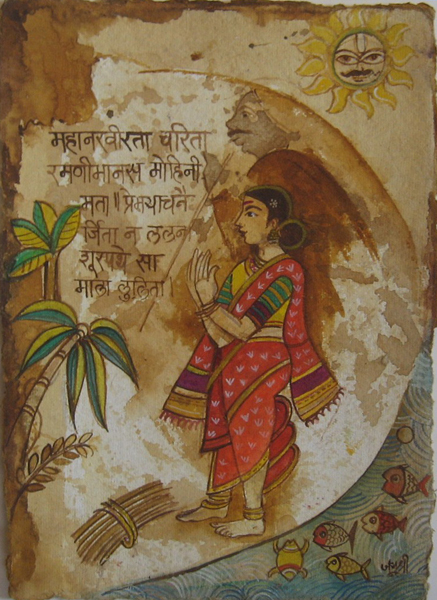 महानरवीरता चरिता
रमणीमानस मोहिनी
मता॥ प्रेमयाचनै-
र्जिता न ललन
शूरपथे सा
माला लुलिता।
जयश्री